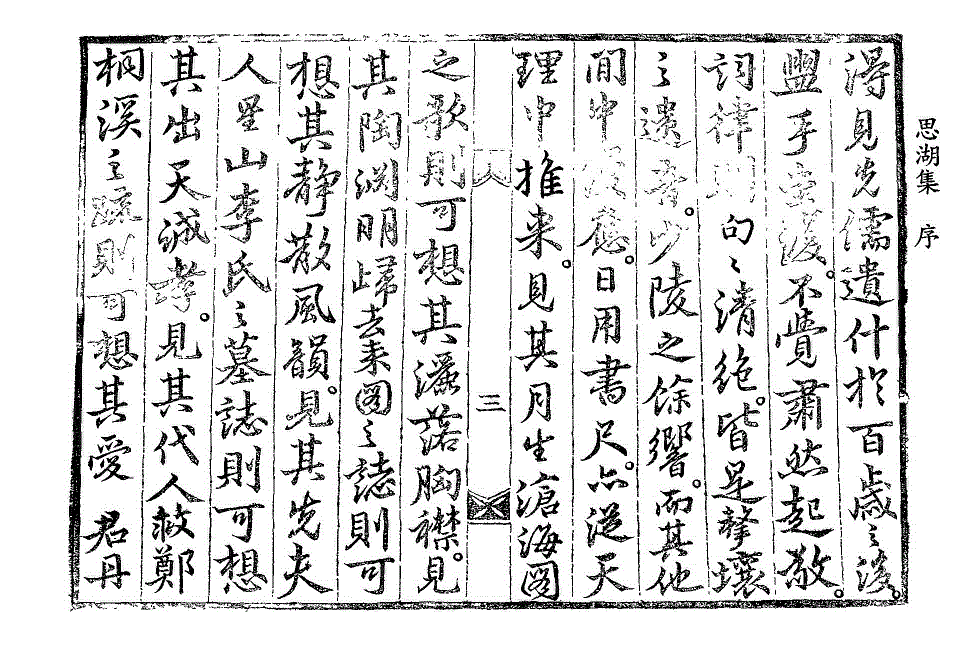 思湖集 序
得見先儒遺什於百歲之後。
盥手莊復。不覺肅然起敬。
詞律則句〻清絶。皆是擊壤
之遺音。少陵之餘響。而其他
間中酬應。日用書尺。亦從天
理中推来。見其月生滄海圖
三
之歌則可想其灑落胸襟。見
其陶淵明歸去来圖之誌則可
想其靜散風韻。見其先夫
人星山李氏之墓誌則可想
其出天誠孝。見其代人救鄭
桐溪之疏則可想其愛 君丹